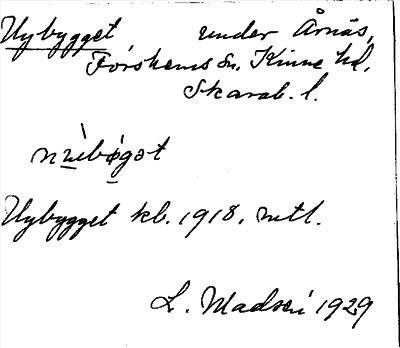 Nybygget under Årnäs,
Forshems sn. Kinne hd.
Skarab. l.
nỳbǿgət
Nybygget kb. 1918, mtl.
L. Madsén 1929